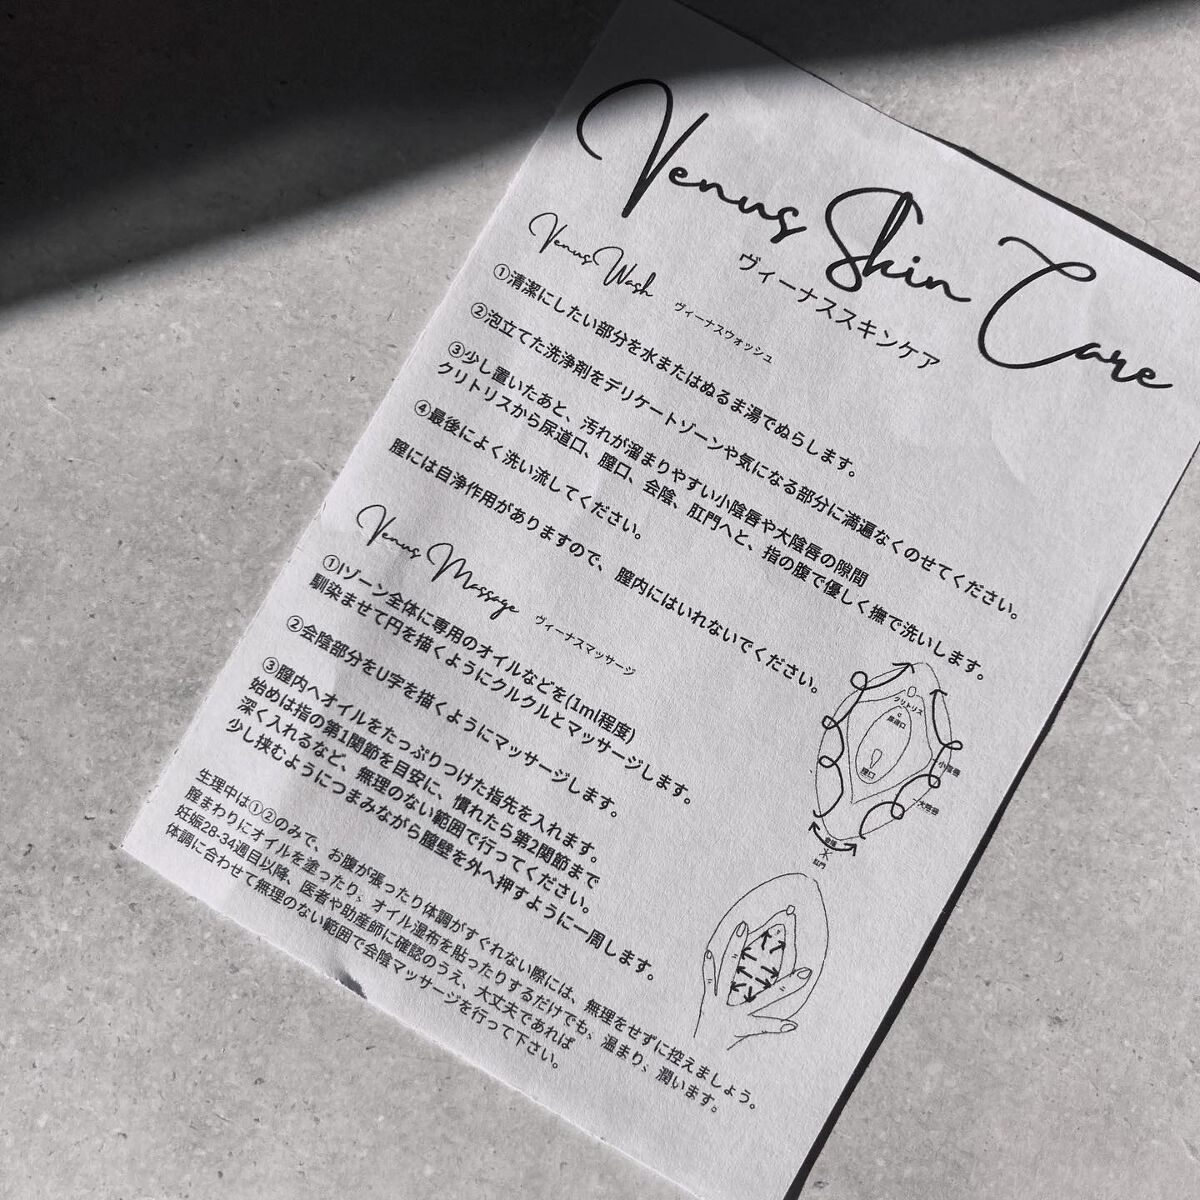 Venus Skin Care
ヴィーナススキンケア
Venus Wash ヴィーナスウォッシュ
①清潔にしたい部分を水またはぬるま湯でぬらします。
②泡立てた洗浄剤をデリケートゾーンや気になる部分に満遍なくのせてください。
③少し置いたあと、汚れが溜まりやすい小陰唇や大陰唇の隙間
クリトリスから尿道口、膣口、会陰、肛門へと、指の腹で優しく撫で洗いします。
④最後によく洗い流してください。
膣には自浄作用がありますので、膣内にはいれないでください。
Venus Massage ヴィーナスマッサージ
①Iゾーン全体に専用のオイルなどを(1ml程度)
馴染ませて円を描くようにクルクルとマッサージします。
②会陰部分をU字を描くようにマッサージします。
③膣内へオイルをたっぷりつけた指先を入れます。
始めは指の第1関節を目安に、慣れたら第2関節まで
深く入れるなど、無理のない範囲で行ってください。
少し挟むようにつまみながら膣壁を外へ押すように一周します。
生理中は①②のみで、お腹が張ったり体調がすぐれない際には、無理をせずに控えましょう。
膣まわりにオイルを塗ったり、オイル湿布を貼ったりするだけでも、温まり、潤います。
妊娠28-34週目以降、医者や助産師に確認のうえ、大丈夫であれば
体調に合わせて無理のない範囲で会陰マッサージを行って下さい。
クリトリス
尿道口
膣口
小陰唇
大陰唇
会陰
肛門